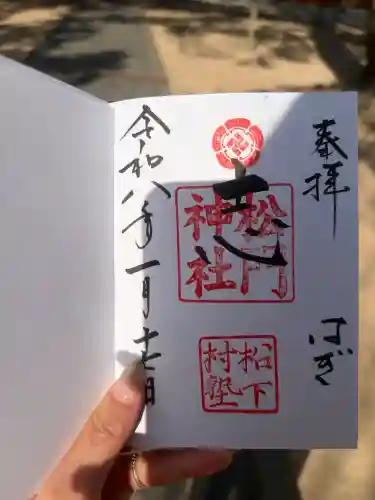 奉拝
はぎ
志
松門神社
松下村塾
令和八年一月十七日